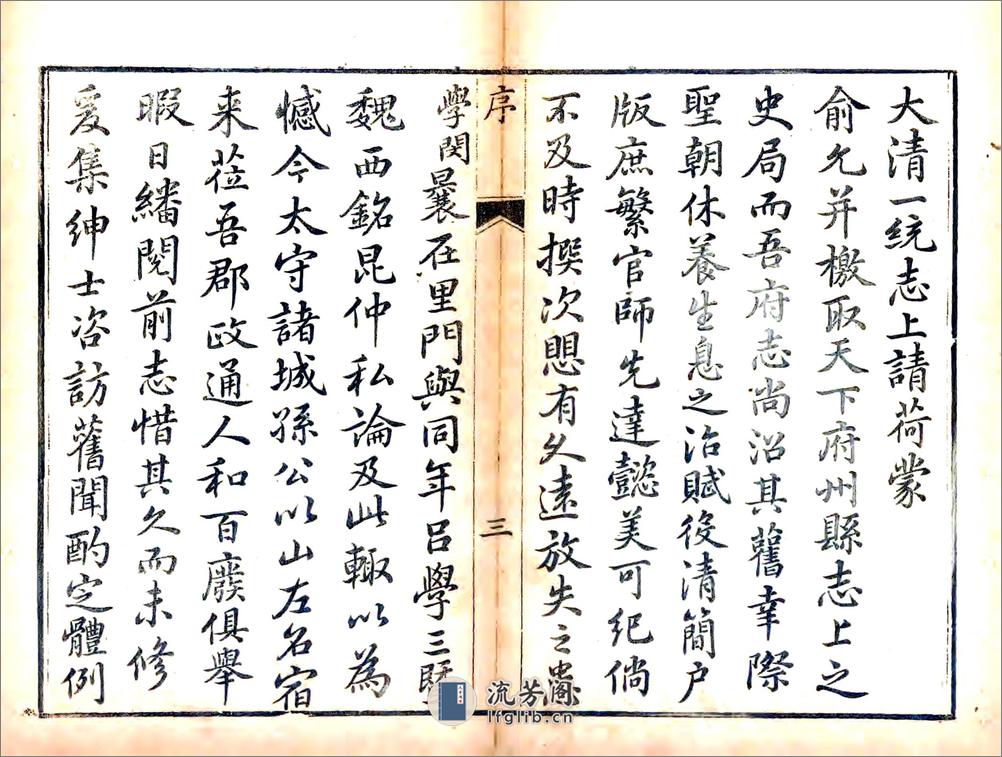 大清一統志上請荷蒙
俞允并檄取天下府州縣志上之
史局而吾府志尚沿其舊幸際
聖朝休養生息之治賦役清簡户
版庶繁官師先達懿美可紀倘
不及時撰次愳有久遠放失之
序
三
學閔曩在里門與同年呂學三既
魏西銘昆仲私論及此輙以為
憾今太守諸城孫公以山左名宿
来莅吾郡政通人和百廢俱舉
暇日繙閱前志惜其久而未修
爰集紳士咨訪舊聞酌定體例
流芳阁
lfglib.cn